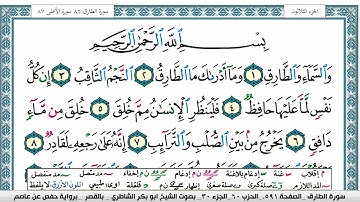 الجزء الثلاثون سورة الطارق ٨٦ سورة الأعلى ٨٧
بِسْمِ ٱللَّهِ ٱلرَّحْمَٰنِ ٱلرَّحِيمِ
وَٱلسَّمَآءِ وَٱلطَّارِقِ ١ وَمَآ أَدْرَىٰكَ مَا ٱلطَّارِقُ ٢ ٱلنَّجْمُ ٱلثَّاقِبُ ٣ إِن كُلُّ
نَفْسٍ لَّمَّا عَلَيْهَا حَافِظٌ ٤ فَلْيَنظُرِ ٱلْإِنسَٰنُ مِمَّ خُلِقَ ٥ خُلِقَ مِن مَّآءٍ
دَافِقٍ ٦ يَخْرُجُ مِنۢ بَيْنِ ٱلصُّلْبِ وَٱلتَّرَآئِبِ ٧ إِنَّهُۥ عَلَىٰ رَجْعِهِۦ لَقَادِرٌ ٨
إقلاب إدغام بلاغنة إدغام بغنة إخفاء مد متصل مد منفصل
سورة الطارق - الصفحة ٥٩١ - الحزب ٦٠ - الجزء ٣٠ - بصوت الشيخ أبو بكر الشاطري - بالقصر - برواية حفص عن عاصم